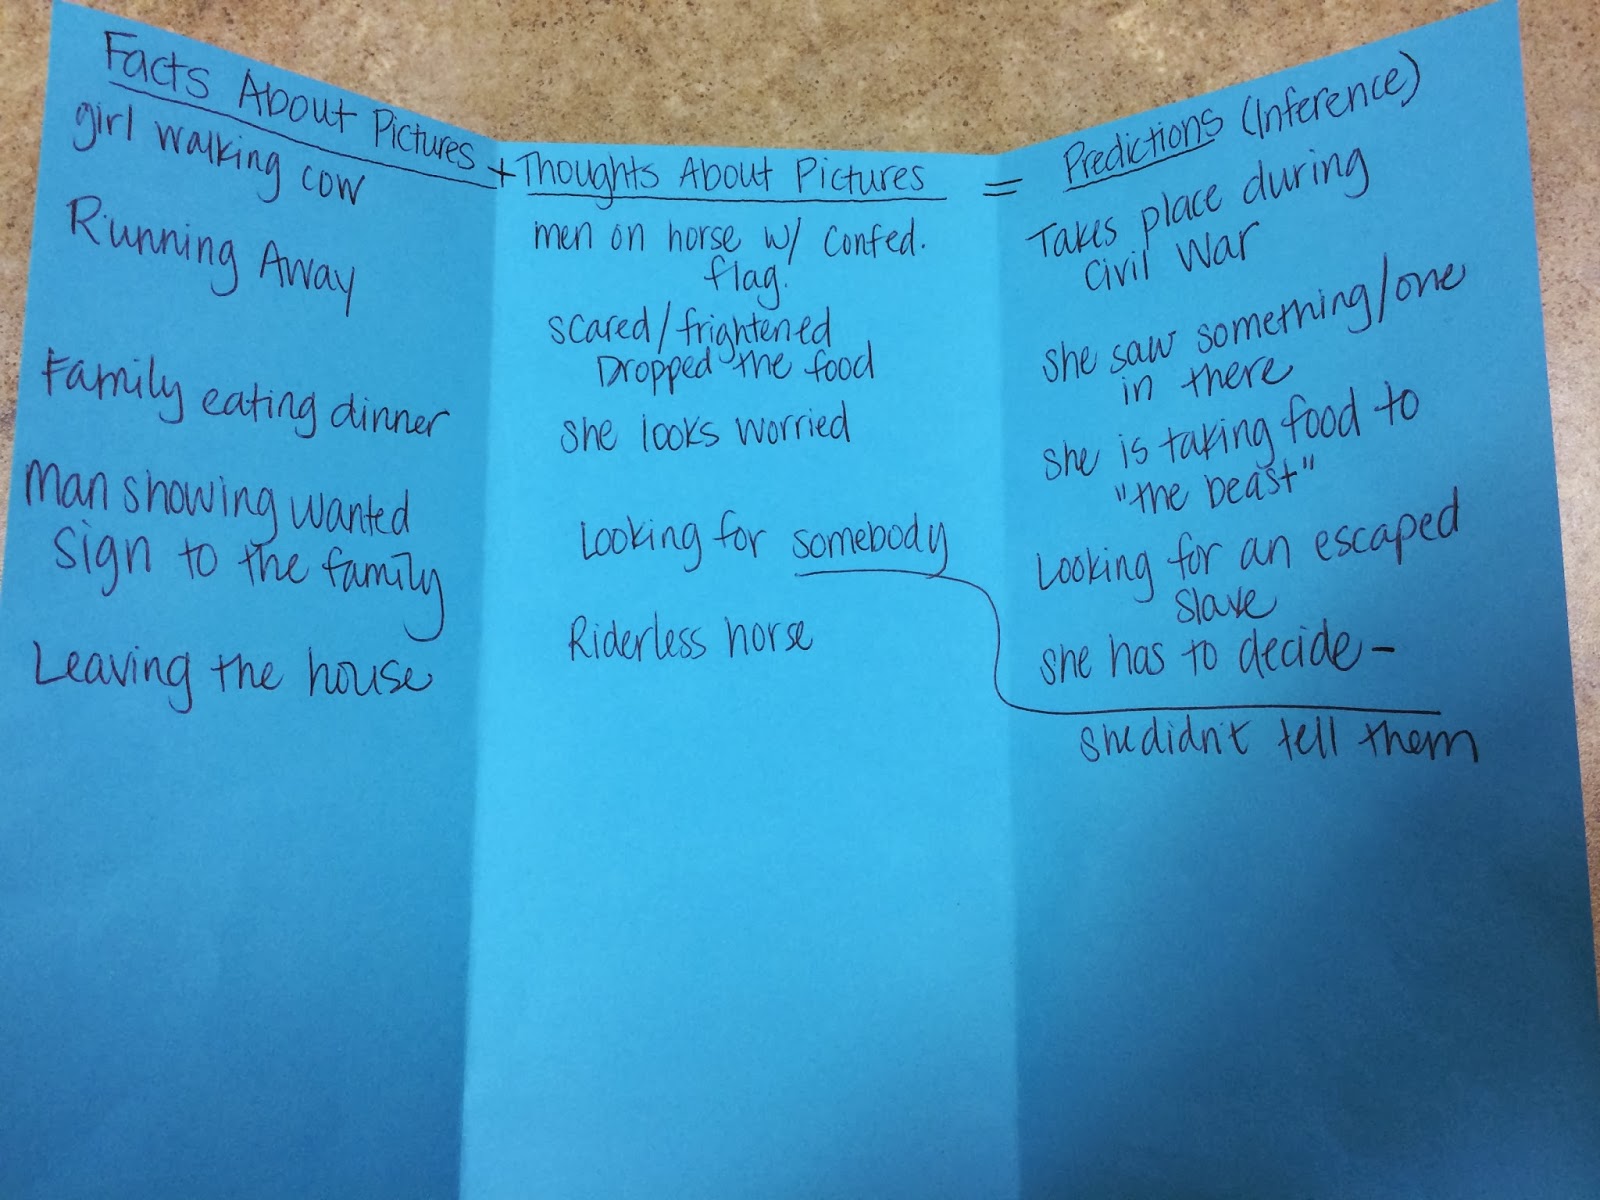 Facts About Pictures
girl walking cow
Running Away
Family eating dinner
Man showing wanted
sign to the family
Leaving the house
+ Thoughts About Pictures =
men on horse w/ confed.
flag.
scared/frightened
Dropped the food
she looks worried
Looking for somebody
Riderless horse
Predictions (Inference)
Takes place during
Civil War
she saw something/one
in there
she is taking food to
"the beast"
Looking for an escaped
slave
she has to decide-
she didn't tell them